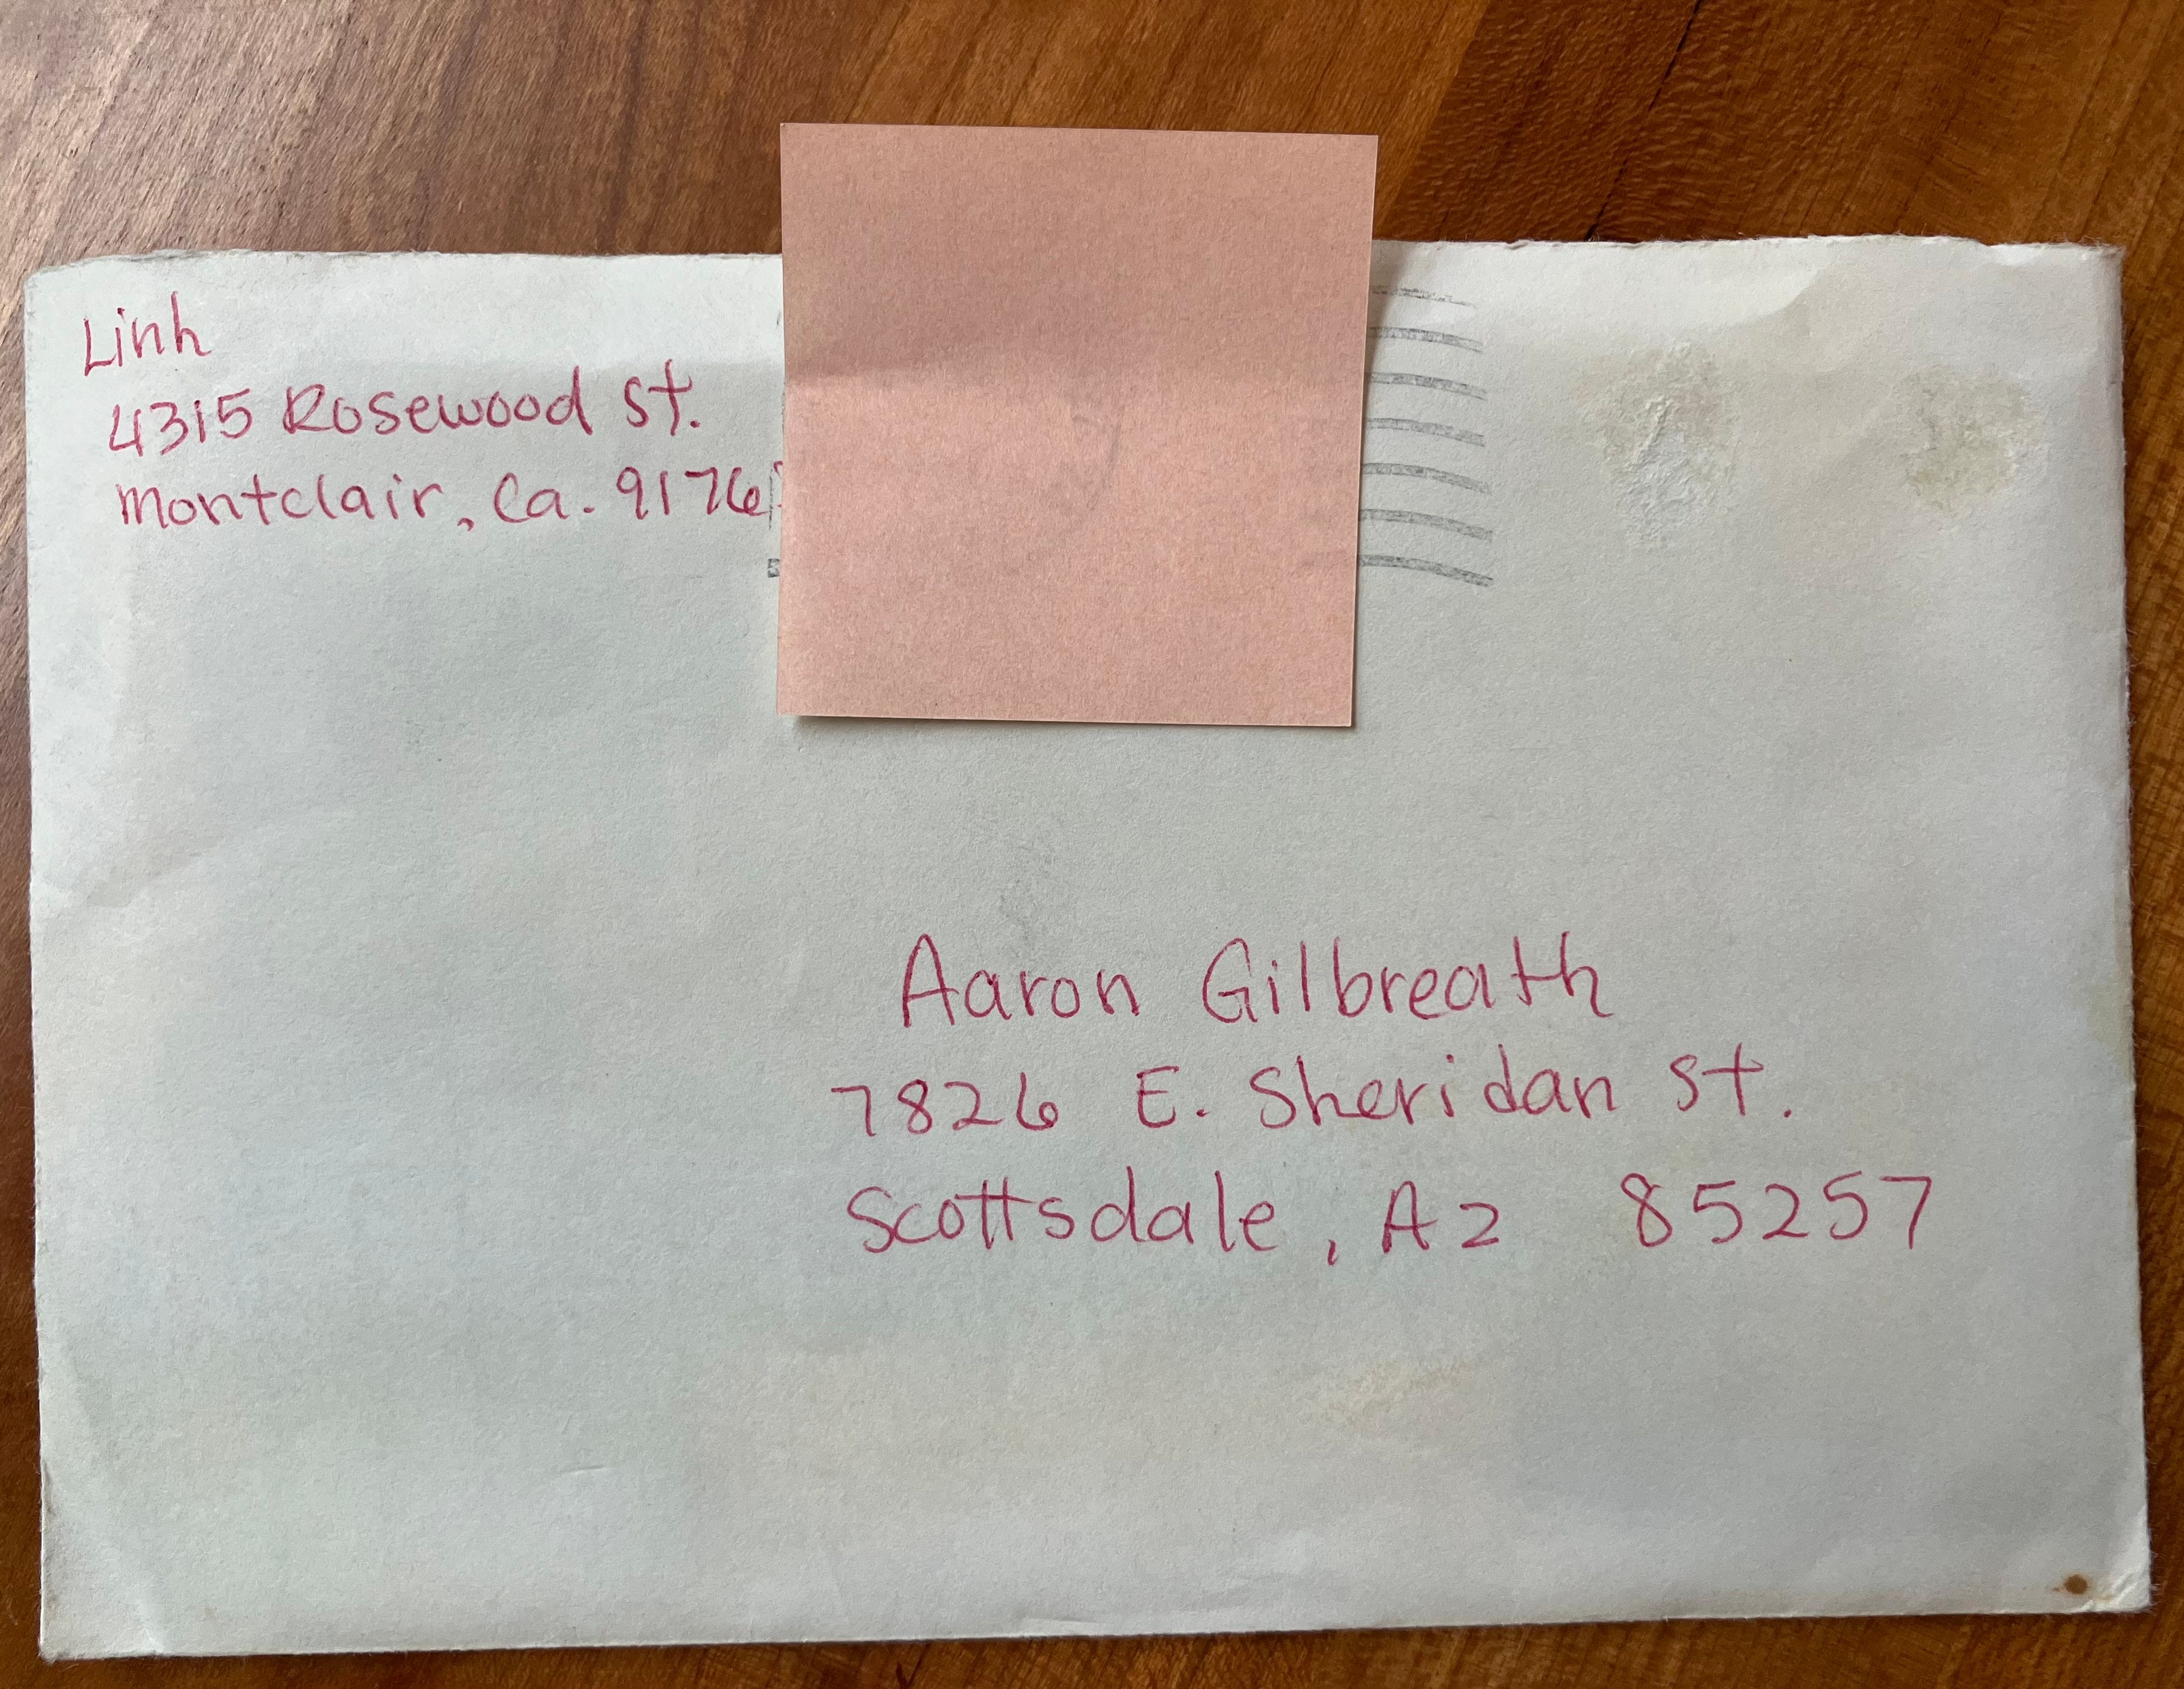 Linh
4315 Rosewood St.
Montclair, Ca.
Aaron Gilbreath
7826 E. Sheridan St.
Scottsdale, AZ 85257